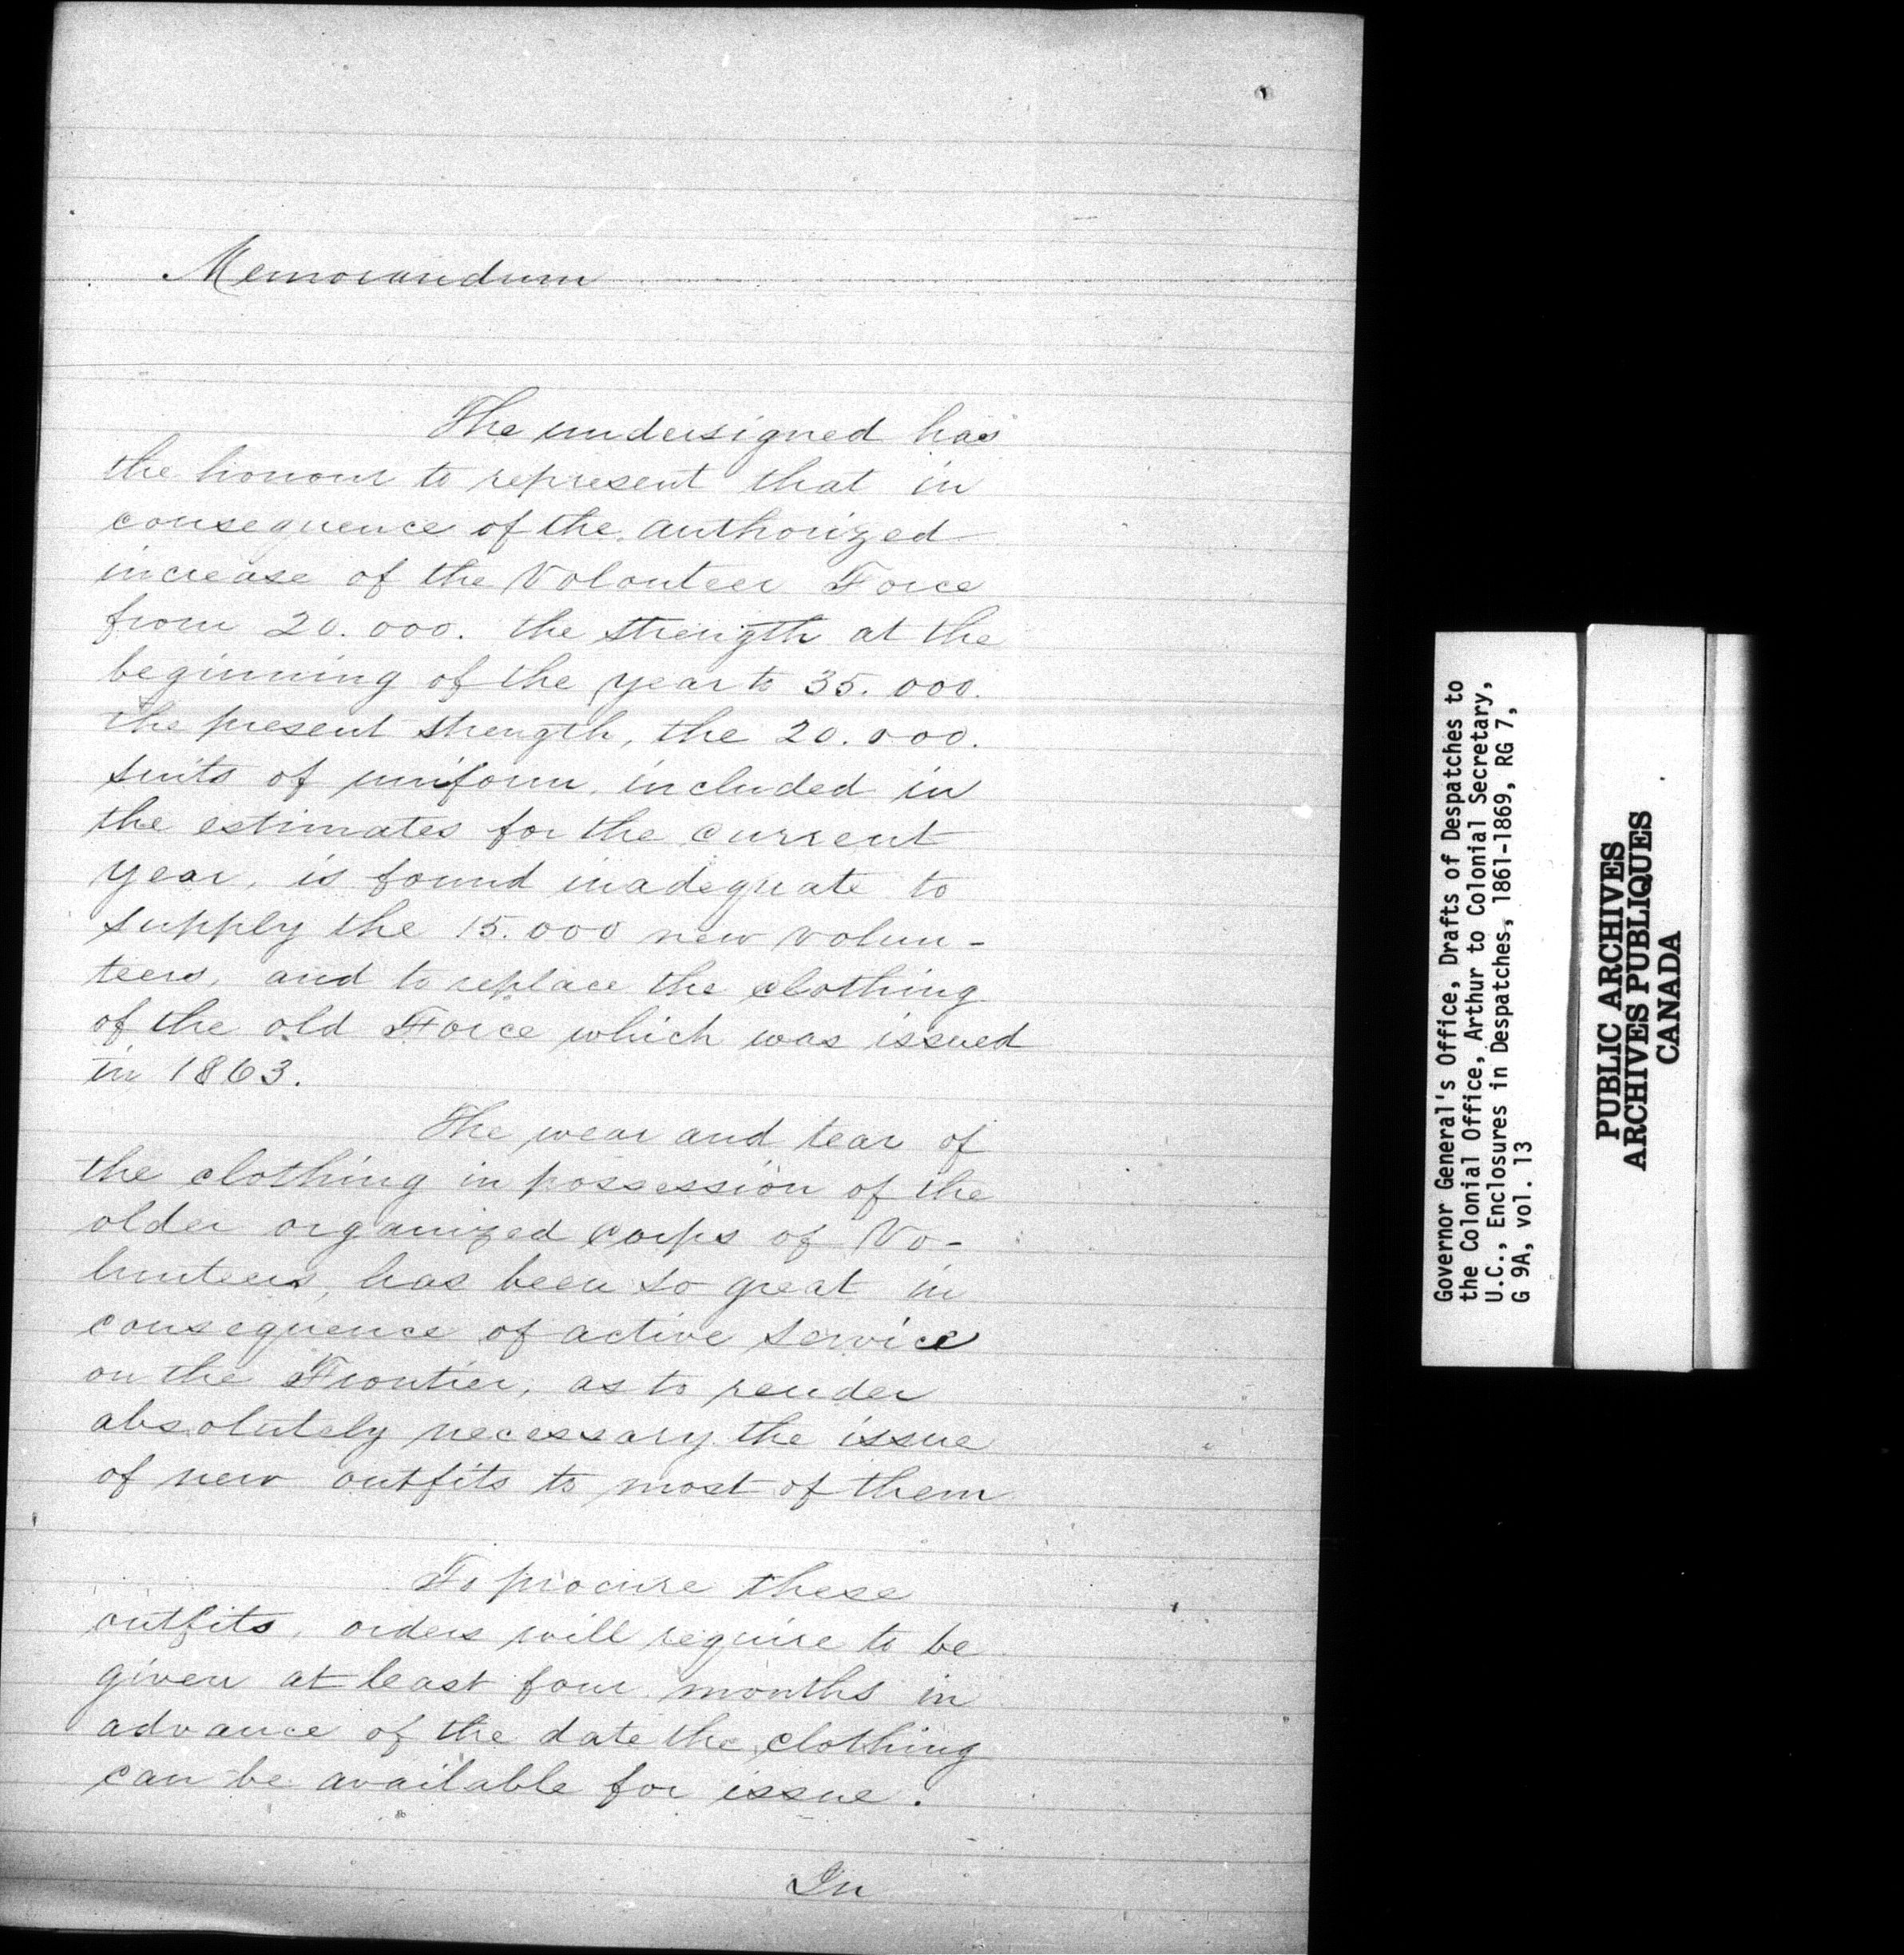 Memorandum
The undersigned has
the honour to represent that in
consequence of the authorized
increase of the Volonteer Force
from 20.000. the strength at the
beginning of the year to 35.000.
the present strength, the 20.000.
suits of uniform, included in
the estimates for the current
year, is found inadequate to
supply the 15.000 new volun-
teers, and to replace the clothing
of the old Force which was issued
in 1863.
The wear and tear of
the clothing in possession of the
older organized corps of Vo-
lunteers, has been so great in
consequence of active service
on the Frontier, as to render
absolutely necessary the issue
of new outfits to most of them
To procure these
outfits, orders will require to be
given at least four months in
advance of the date the clothing
can be available for issue.
In
Governor General's Office, Drafts of Despatches to
the Colonial Office, Arthur to Colonial Secretary,
U.C., Enclosures in Despatches, 1861-1869, RG 7,
G 9A, vol. 13
PUBLIC ARCHIVES
ARCHIVES PUBLIQUES
CANADA